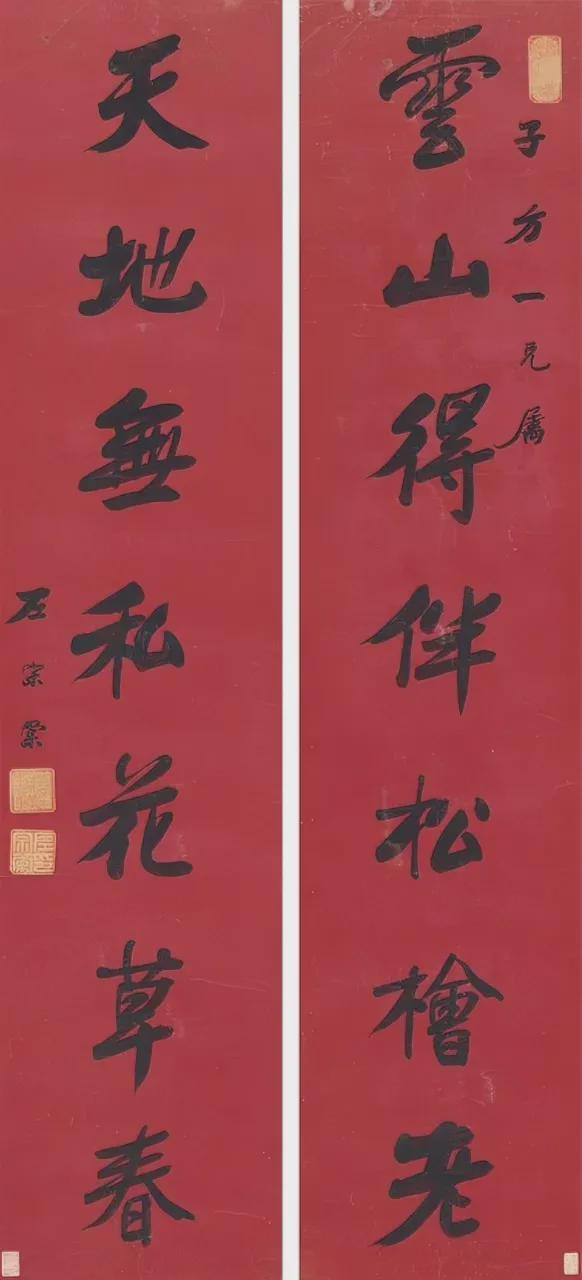 子方一兄屬
雲山得伴松檜老
天地無私花草春
左宗棠